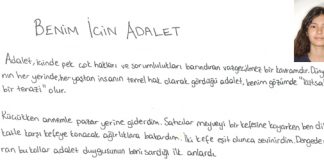 BENİM İÇİN ADALET
Adalet, içinde pek çok hakları ve sorumlulukları barındıran vazgeçilmez bir kavramdır. Düny
nın her yerinde, her yaştan insanın temel hak olarak gördüğü adalet, benim gözümde "kutsal
bir terazi" olur.
Küçükken annemle pazar yerine giderdim. Satıcılar meyveyi bir kefesine koyarken ben di
katle karşı kefeye konacak ağırlıklara bakardım. İki kefe eşit olunca sevinirdim. Dengede
ran bu kollar adalet duygusunun beni sardığı ilk anlardı.